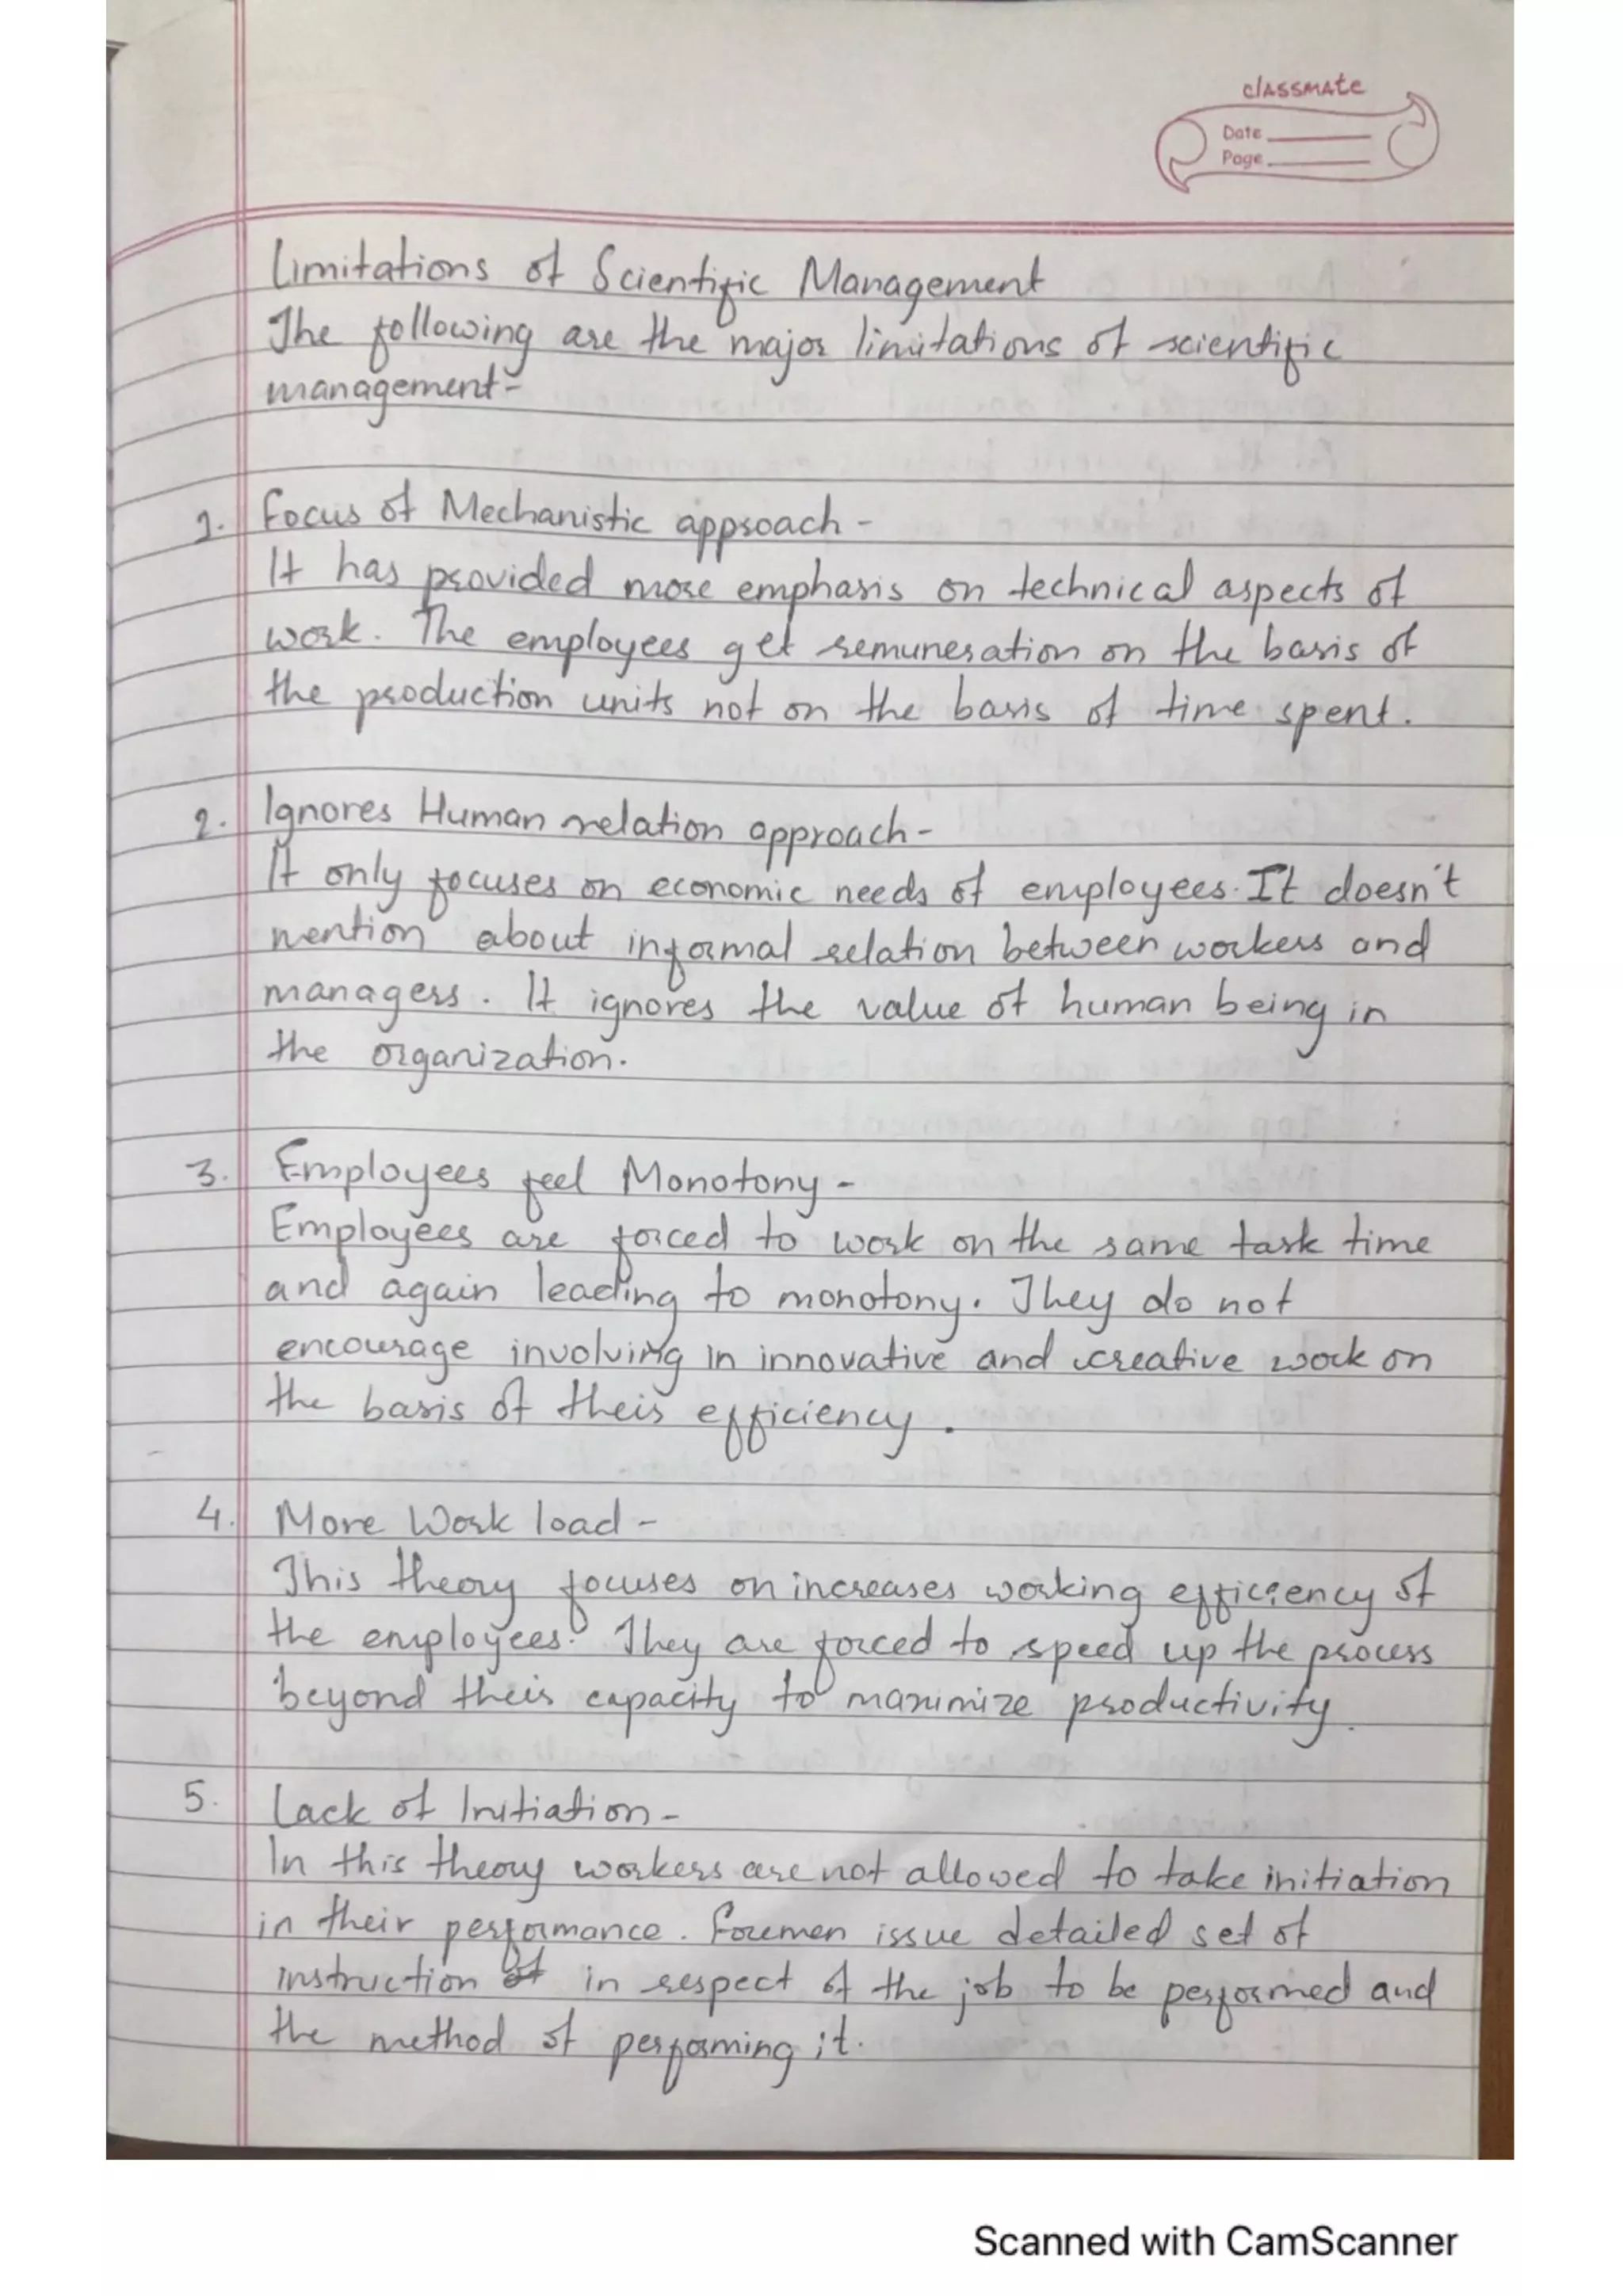 classmate
Date
Page
Limitations of Scientific Management
The following are the major limitations of scientific
management-
1. Focus of Mechanistic approach -
It has provided more emphasis on technical aspects of
work. The employees get remuneration on the basis of
the production units not on the basis of time spent.
2. Ignores Human relation approach-
It only focuses on economic needs of employees. It doesn't
mention about informal relation between workers and
managers. It ignores the value of human being in
the organization.
3. Employees feel Monotony -
Employees are forced to work on the same task time
and again leading to monotony. They do not
encourage involving in innovative and creative work on
the basis of their efficiency.
4. More Work load -
This theory focuses on increases working efficiency of
the employees. They are forced to speed up the process
beyond their capacity to maximize productivity.
5. Lack of Initiation -
In this theory workers are not allowed to take initiation
in their performance. Foremen issue detailed set of
instruction in respect of the job to be performed and
the method of performing it.
Scanned with CamScanner